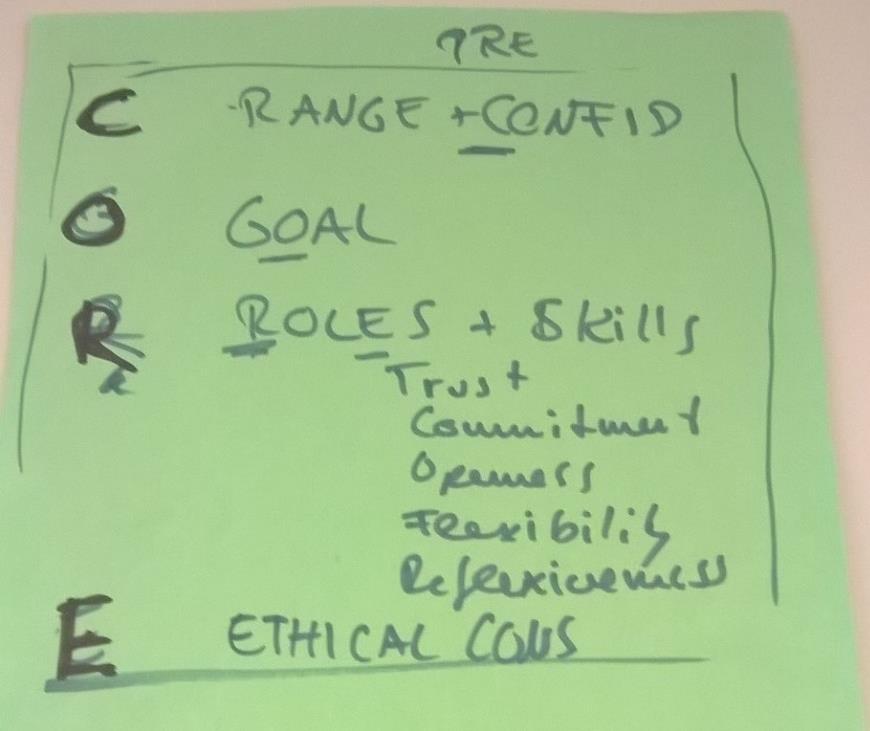 PRE
C RANGE + CONFID
O GOAL
R ROLES + Skills
Trust
Commitment
Openness
Flexibility
Reflexiveness
E ETHICAL CONS